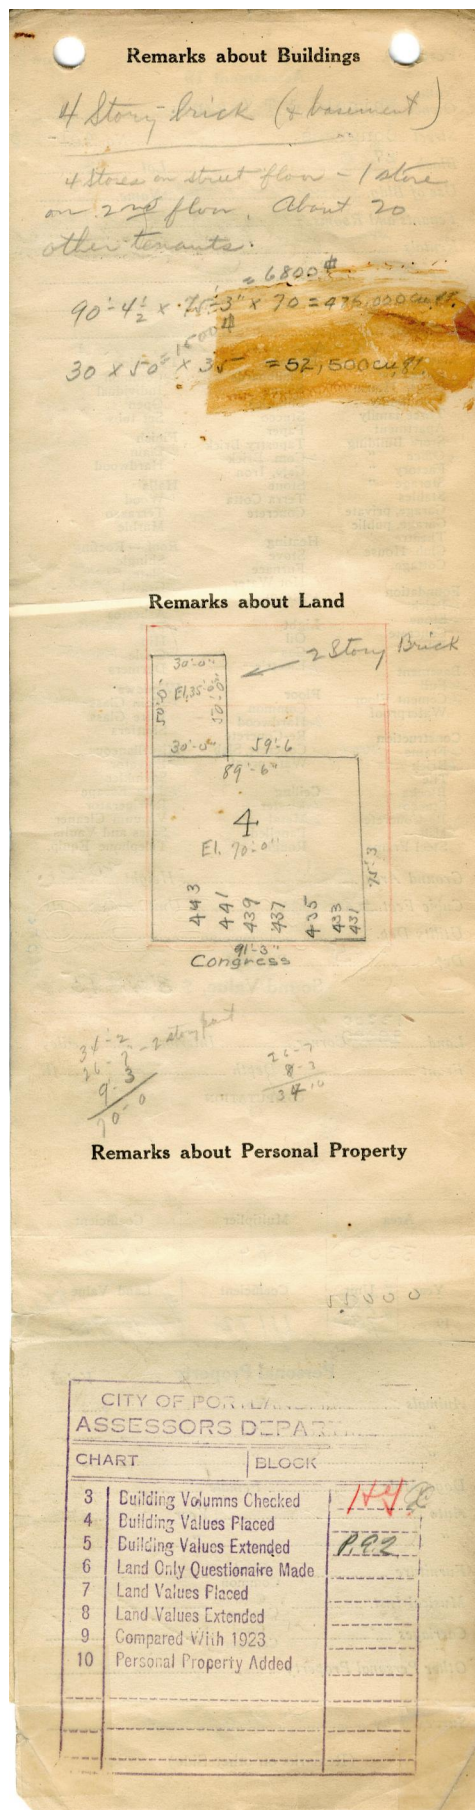 Remarks about Buildings
4 Story brick (& basement)
4 Stores on street floor - 1 store
on 2nd floor. About 20
other tenants.
= 6800#
90'-4½ x 75'-3" x 70 = 475,000 cu. ft.
= 1500#
30 x 50 x 35 = 52,500 cu. ft.
Remarks about Land
2 Story Brick
30'-0"
50'-0"
El. 35'-0"
50'-0"
30'-0"
59'-6
89'-6"
4
El. 70'-0"
75'-3
443
441
439
437
435
433
431
91'-3"
Congress
34-2
26-7 - 2 story part
9-3
70-0
26-7
34 10
Remarks about Personal Property
CITY OF PORTLAND
ASSESSORS DEPART
CHART BLOCK
3 Building Volumns Checked
4 Building Values Placed
5 Building Values Extended P.92
6 Land Only Questionaire Made
7 Land Values Placed
8 Land Values Extended
9 Compared With 1923
10 Personal Property Added